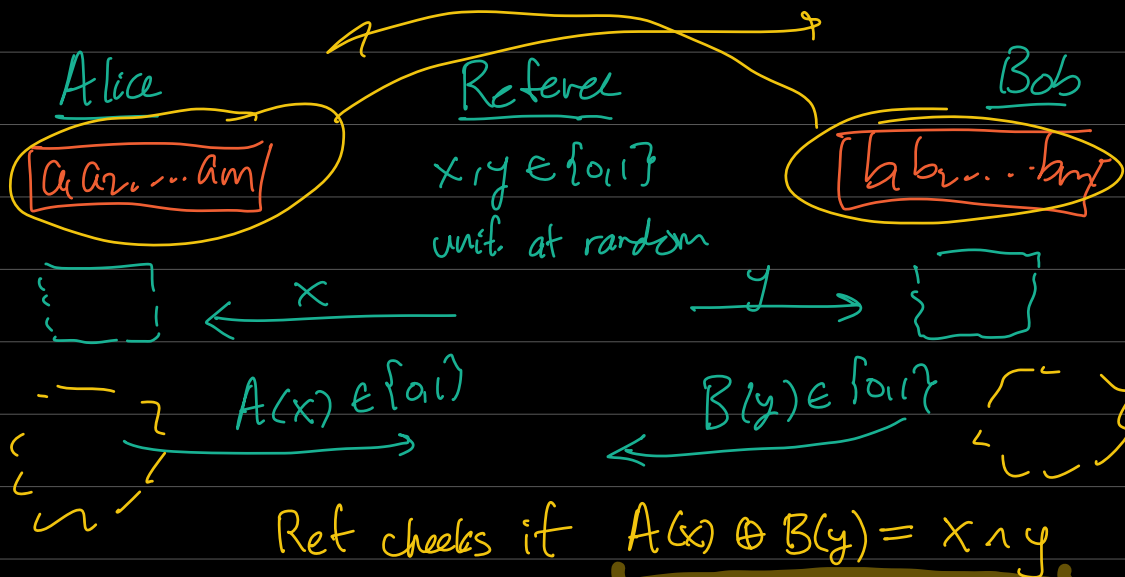 Alice Referee Bob
a₁ a₂, .... am x, y ∈ {0,1} b₁ b₂, .... bm
unif. at random
x y
A(x) ∈ {0,1} B(y) ∈ {0,1}
Ref checks if A(x) ⊕ B(y) = x ∧ y